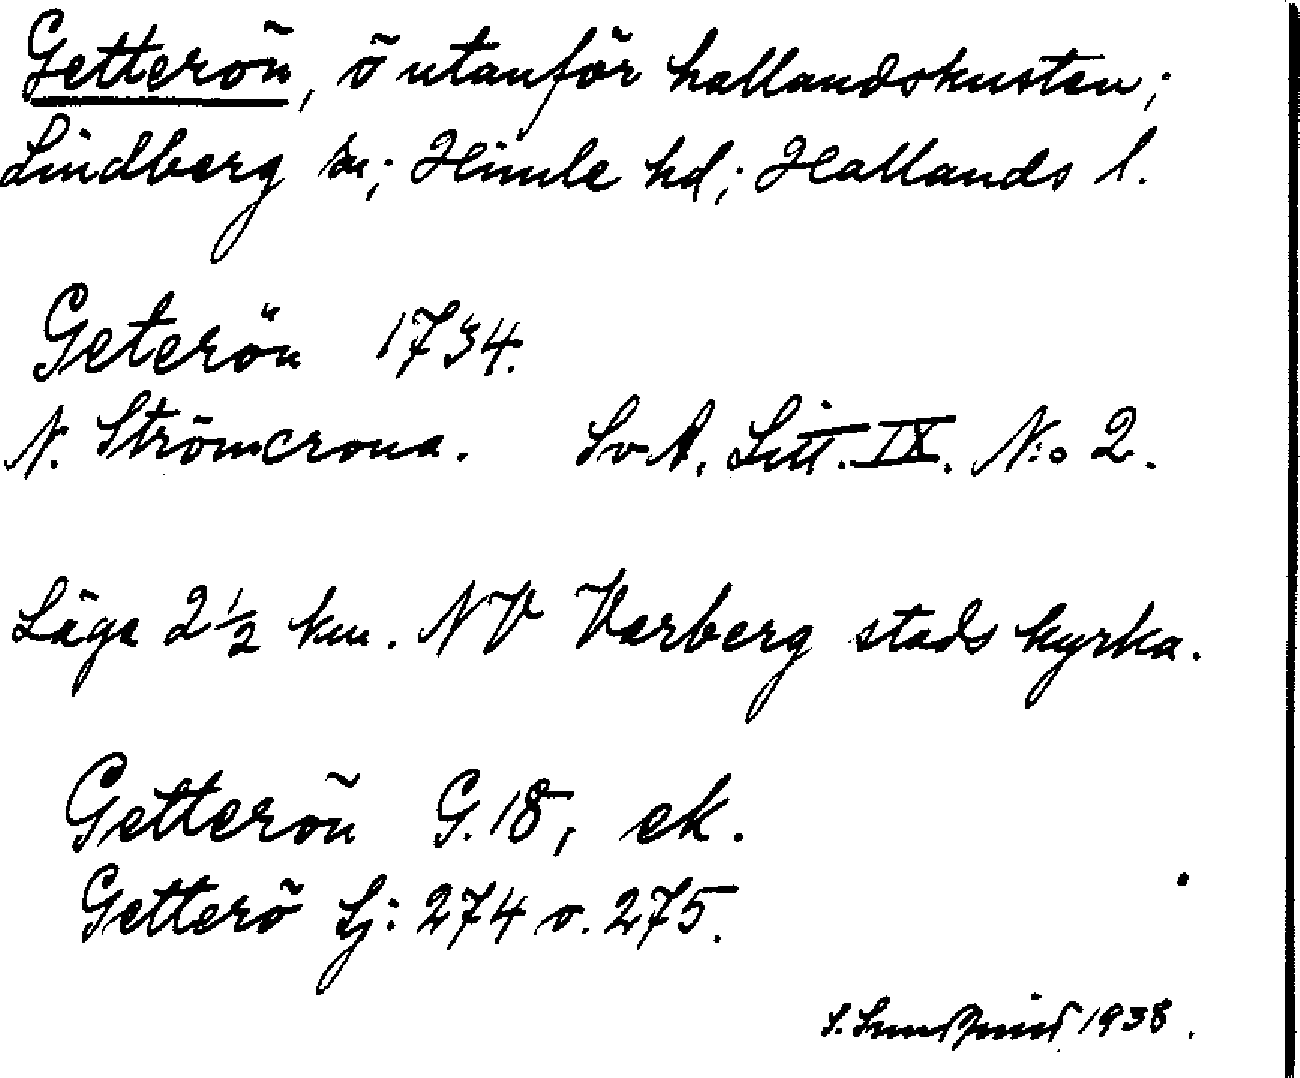 Getterön, ö utanför hallandskusten;
Lindberg sn; Himle hd; Hallands l.
Geterön 1734.
N. Strömcrona. SvA. Litt. IX. N:o 2.
Läge 2½ km. NV Varberg stads kyrka.
Getterön G. 18, ek.
Getterö Sj: 274 o. 275.
S. Sundquist 1938.